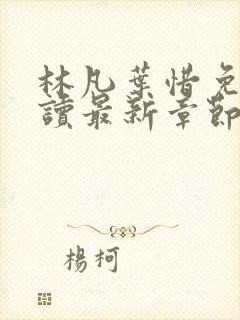 林凡葉惜免
讀最新章節
楊柯